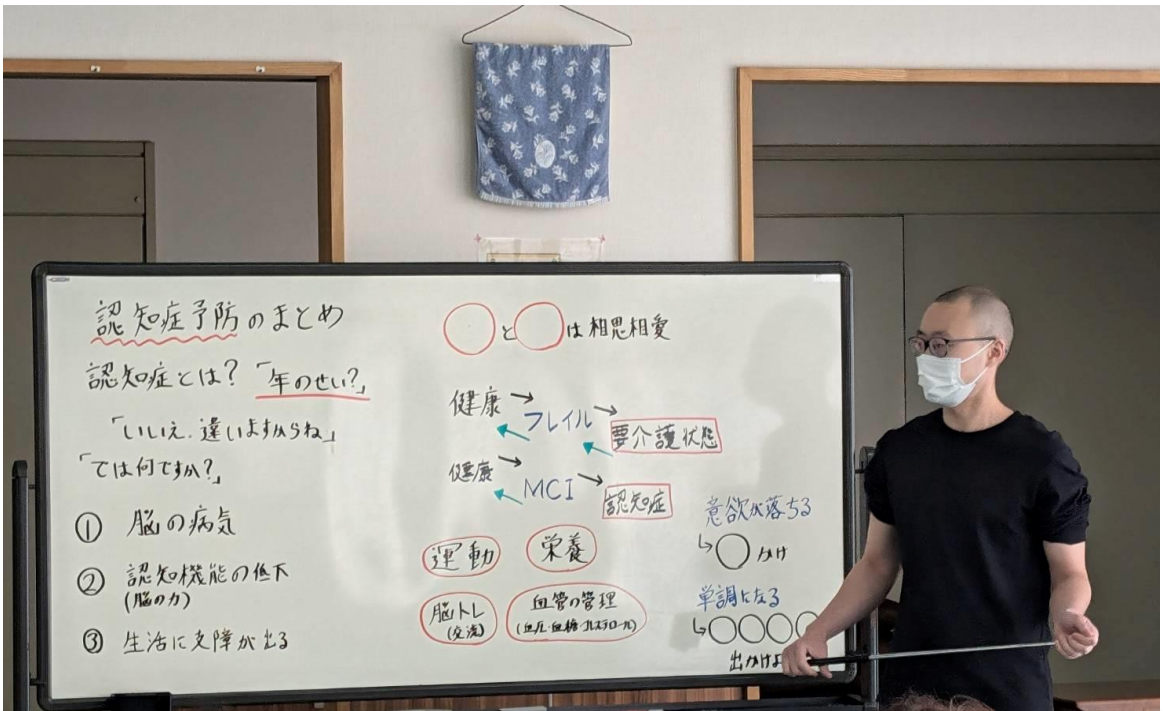 認知症予防のまとめ
認知症とは?「年のせい?」
「いいえ、違いますからね」
「では何ですか?」
① 脳の病気
② 認知機能の低下
(脳の力)
③ 生活に支障が出る
○と○は相思相愛
健康→フレイル→要介護状態
健康→MCI→認知症
運動
栄養
脳トレ
(交流)
血管の管理
(血圧・血糖・コレステロール)
意欲が落ちる
↳○かけ
単調になる
↳○○○○
出かけよ